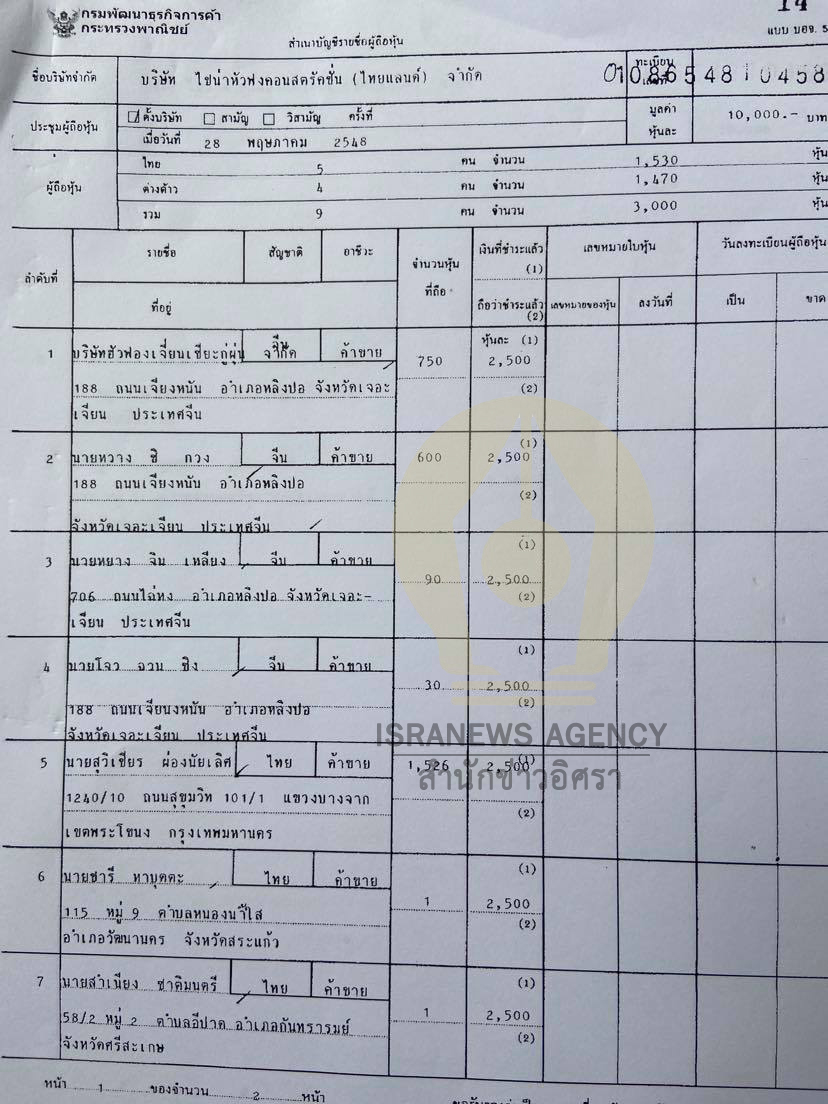 14
กรมพัฒนาธุรกิจการค้า
กระทรวงพาณิชย์
แบบ บอจ. 5
สำเนาบัญชีรายชื่อผู้ถือหุ้น
ชื่อบริษัทจำกัด บริษัท ไชน่าหัวฟงคอนสตรัคชั่น (ไทยแลนด์) จำกัด ทะเบียนเลขที่ 0108654810458
ประชุมผู้ถือหุ้น ตั้งบริษัท สามัญ วิสามัญ ครั้งที่ มูลค่าหุ้นละ 10,000.- บาท
เมื่อวันที่ 28 พฤษภาคม 2548
ผู้ถือหุ้น ไทย 5 คน จำนวน 1,530 หุ้น
ต่างด้าว 4 คน จำนวน 1,470 หุ้น
รวม 9 คน จำนวน 3,000 หุ้น
ลำดับที่ รายชื่อ สัญชาติ อาชีวะ จำนวนหุ้นที่ถือ เงินที่ชำระแล้ว (1) เลขหมายใบหุ้น วันลงทะเบียนผู้ถือหุ้น
ที่อยู่ ถือว่าชำระแล้ว (2) เลขหมายของหุ้น ลงวันที่ เป็น ขาด
หุ้นละ (1)
1 บริษัทฮัวฟองเจี่ยนเชียะกู่ผุ่น จำกัด จีน ค้าขาย 750 2,500
188 ถนนเจียงหนัน อำเภอหลิงปอ จังหวัดเจอะ (2)
เจียน ประเทศจีน
2 นายหวาง ชิ กวง จีน ค้าขาย 600 (1) 2,500
188 ถนนเจียงหนัน อำเภอหลิงปอ (2)
จังหวัดเจอะเจียน ประเทศจีน
3 นายหยาง จิน เหลียง จีน ค้าขาย 90 (1) 2,500
706 ถนนไฉ่หง อำเภอหลิงปอ จังหวัดเจอะ- (2)
เจียน ประเทศจีน
4 นายโจว ฉวน ชิง จีน ค้าขาย 30 (1) 2,500
188 ถนนเจียนงหนัน อำเภอหลิงปอ (2)
จังหวัดเจอะเจียน ประเทศจีน
ISRANEWS AGENCY
สำนักข่าวอิศรา
5 นายสุวิเชียร ผ่องนัยเลิศ ไทย ค้าขาย 1,526 (1) 2,500
1240/10 ถนนสุขุมวิท 101/1 แขวงบางจาก (2)
เขตพระโขนง กรุงเทพมหานคร
6 นายชารี ทาบุตตะ ไทย ค้าขาย 1 (1) 2,500
115 หมู่ 9 ตำบลหนองน้ำใส (2)
อำเภอวัฒนานคร จังหวัดสระแก้ว
7 นายสำเนียง ชาติมนตรี ไทย ค้าขาย 1 (1) 2,500
58/2 หมู่ 2 ตำบลอีปาด อำเภอกันทรารมย์ (2)
จังหวัดศรีสะเกษ
หน้า 1 ของจำนวน 2 หน้า